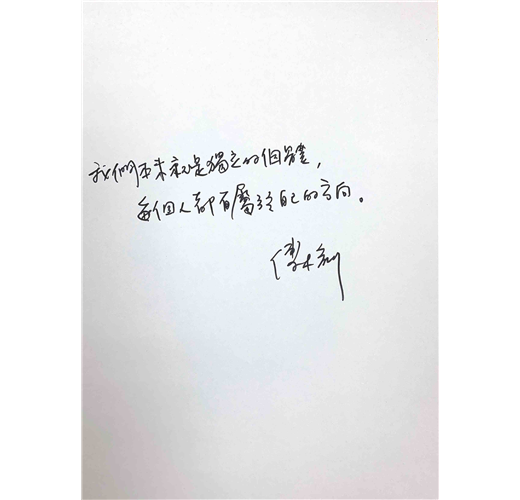 我們本來就是獨立的個體，
每個人都有屬於自己的方向。